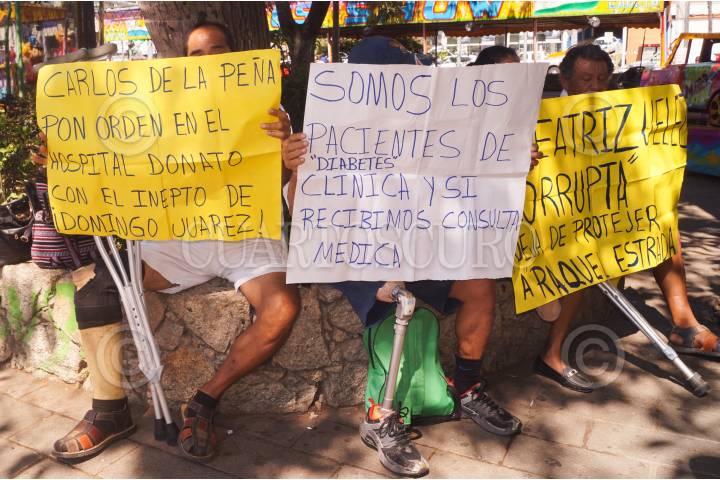 CARLOS DE LA PEÑA
PON ORDEN EN EL
HOSPITAL DONATO
CON EL INEPTO DE
¡DOMINGO JUAREZ!
SOMOS LOS
PACIENTES DE
"DIABETES"
CLINICA Y SI
RECIBIMOS CONSULTA
MEDICA
EATRIZ VELEZ
ORRUPTA"
DEJA DE PROTEJER
A RAQUEL ESTRADA
CUARTOSCURO